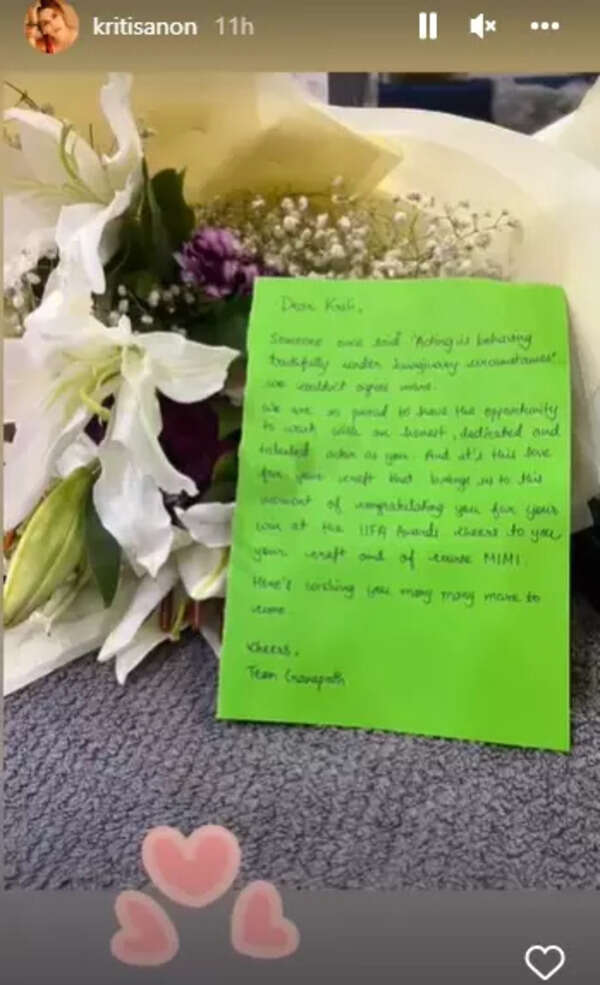 kritisanon 11h
Dear Kriti,
Someone once said "Acting is behaving
truthfully under imaginary circumstances".
we couldn't agree more.
We are so proud to have the opportunity
to work with an honest, dedicated and
talented actor as you. And it's this love
for your craft that brings us to this
moment of congratulating you for your
win at the IIFA Awards cheers to you
your craft and of course MIMI.
Here's wishing you many many more to
come
Cheers,
Team Ganapath